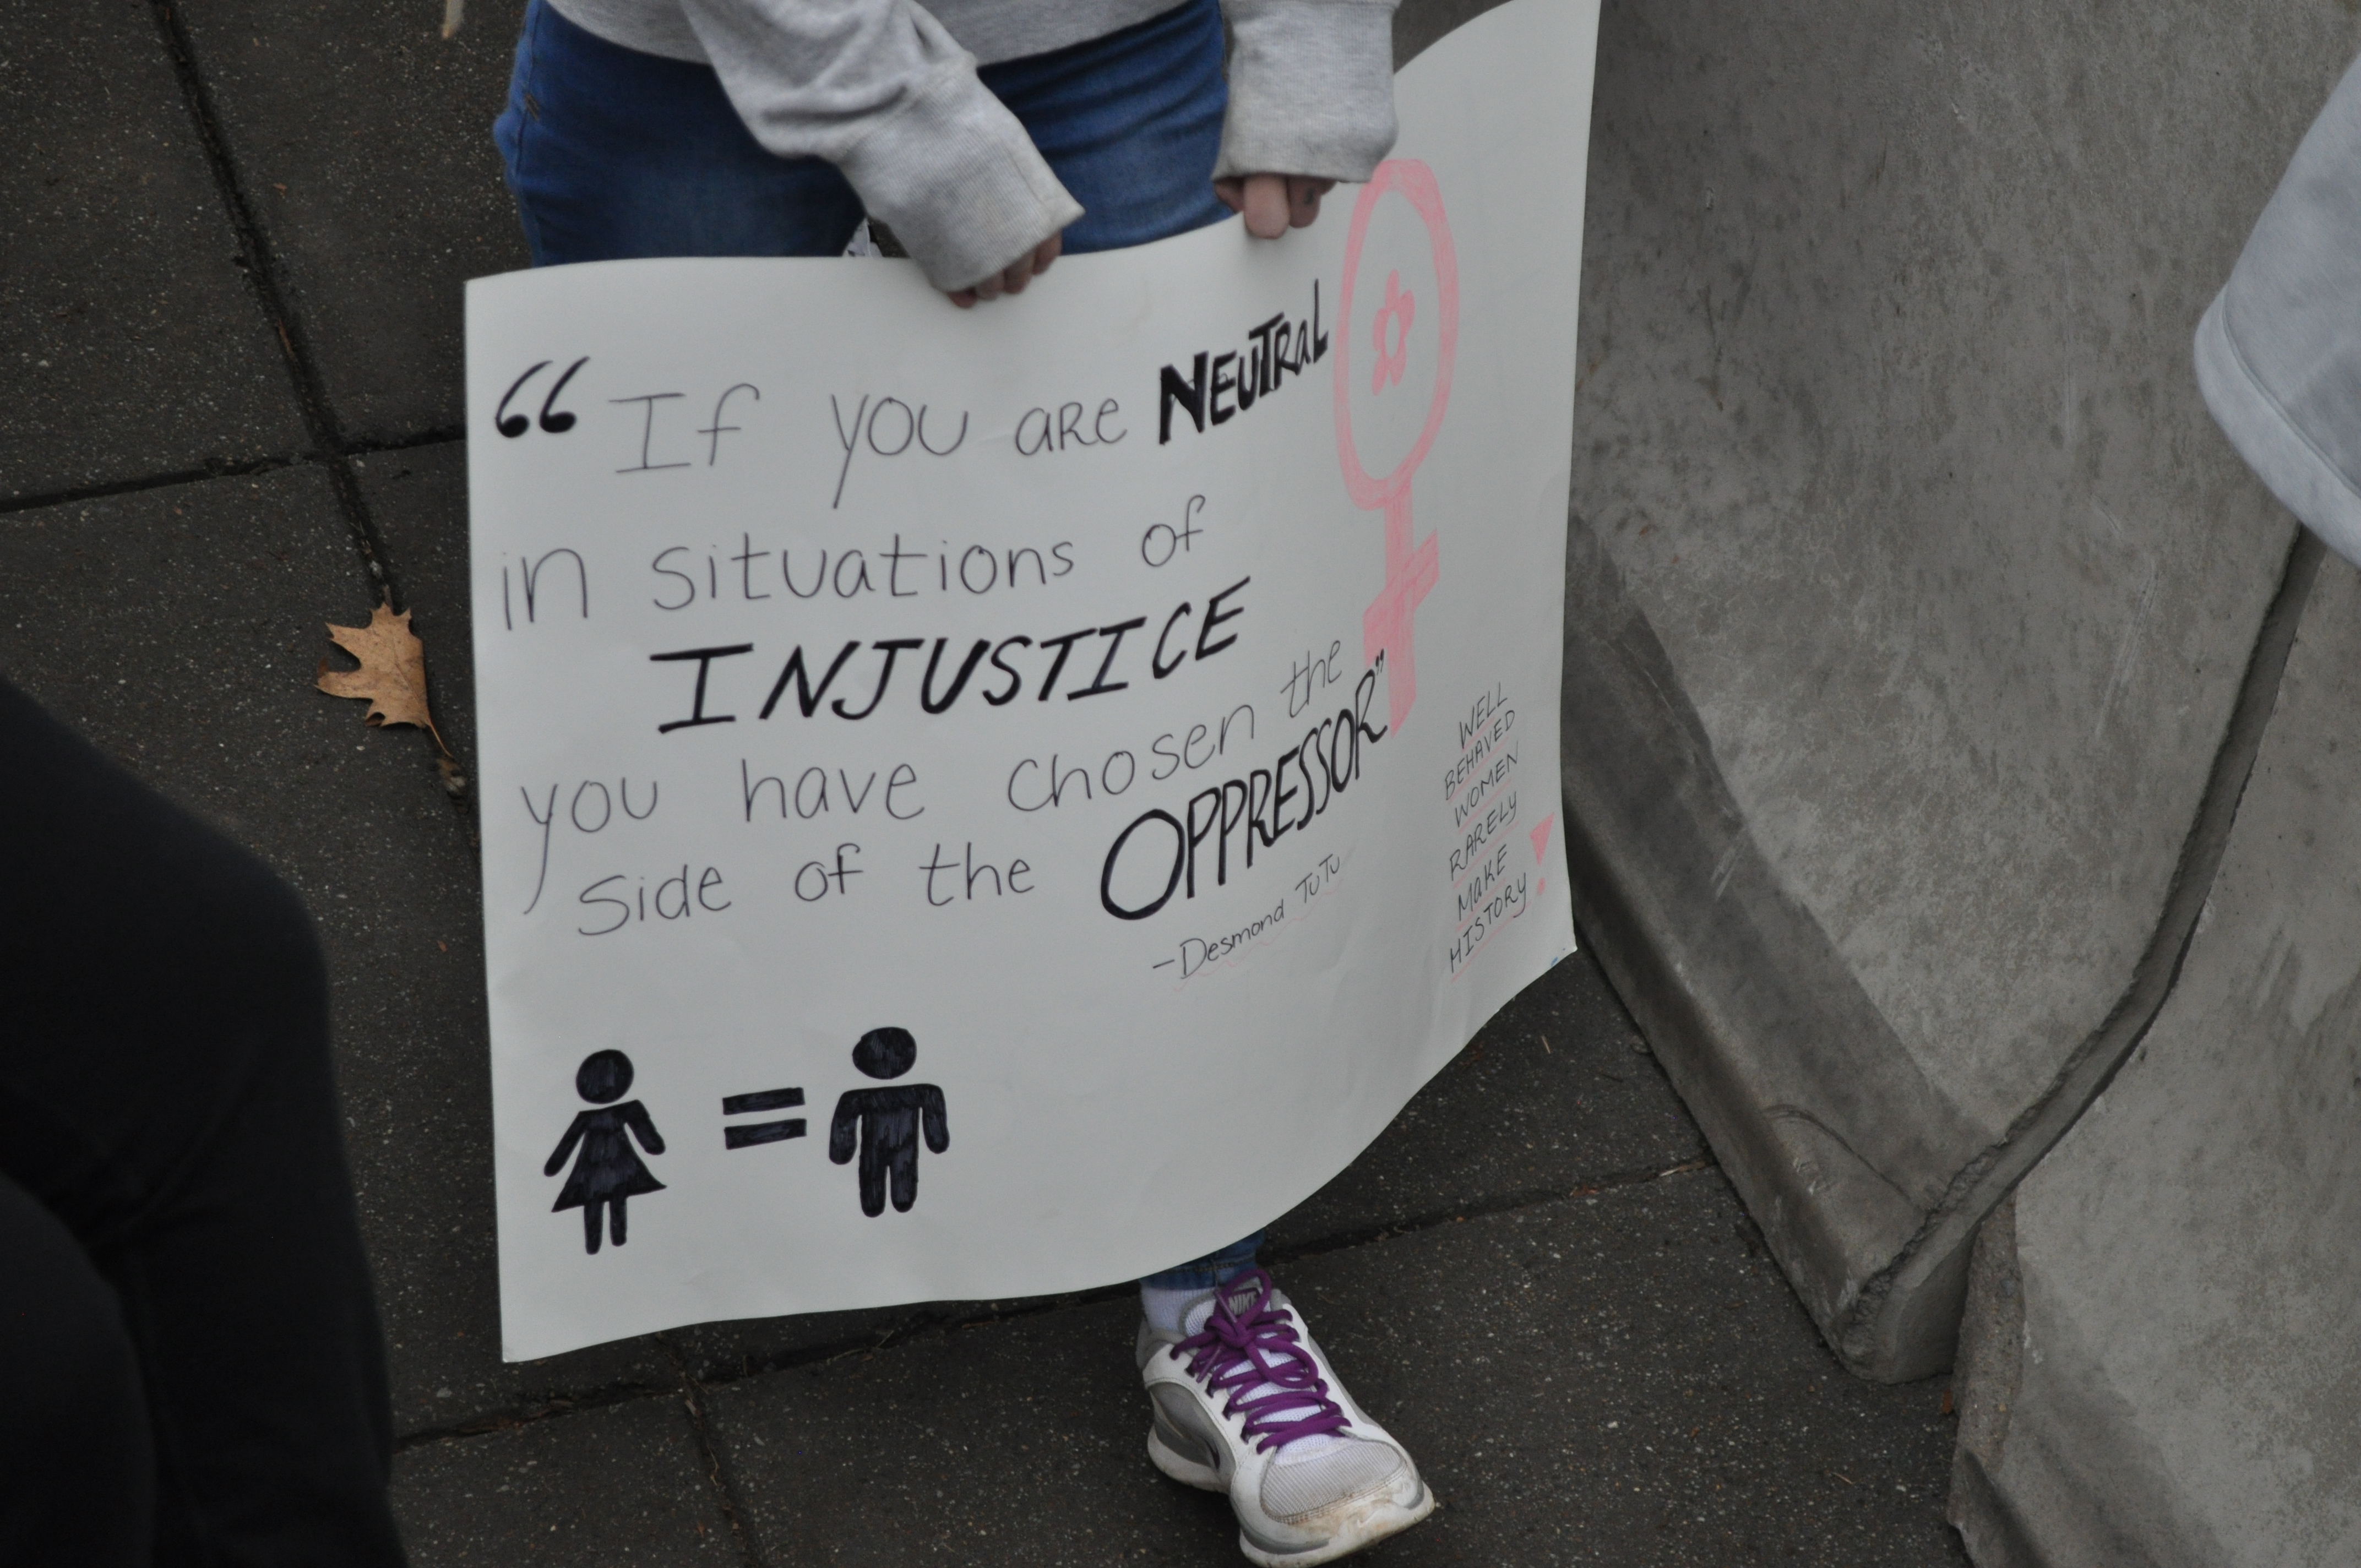 “ If you are NEUTRAL
in situations of
INJUSTICE
you have chosen the
side of the OPPRESSOR”
-Desmond TuTu
WELL
BEHAVED
WOMEN
RARELY
MAKE
HISTORY!
=
NIKE